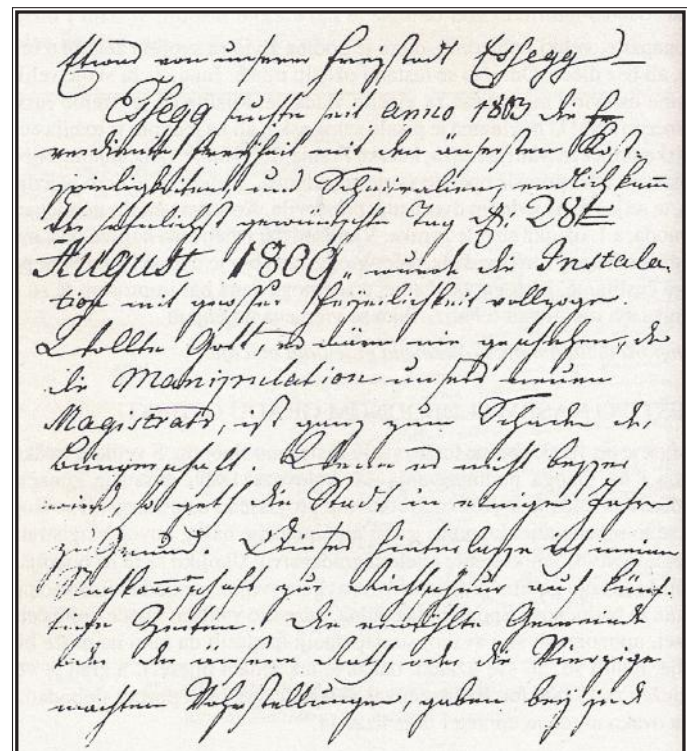 Etwas von unserer Freystadt Essegg
Essegg suchte seit anno 1803 die so
verdiente Freyheit mit den äusersten Kost-
spieligkeiten und Schwiralien, endlich kamm
der sehnlichst gewünschte Tag, d. 28t
August 1809, wurde die Instala-
tion mit grosser Feyerlichkeit vollzogen.
Wollte Gott, es wäre nie geschehen, den
die Manipulation unsers neuen
Magistrats, ist ganz zum Schaden der
Bürgerschaft. Wenn es nicht besser
wird so geht die Stadt in einigen Jahren
zu Grund. Dieses hinterlasse ich meiner
Nachkommschaft zur Richtschnur auf künf-
tige Zeiten. Die erwählte Gemeinde
oder der äusere Rath, oder die Vierziger
machten Vohrstellungen, gaben bey jede